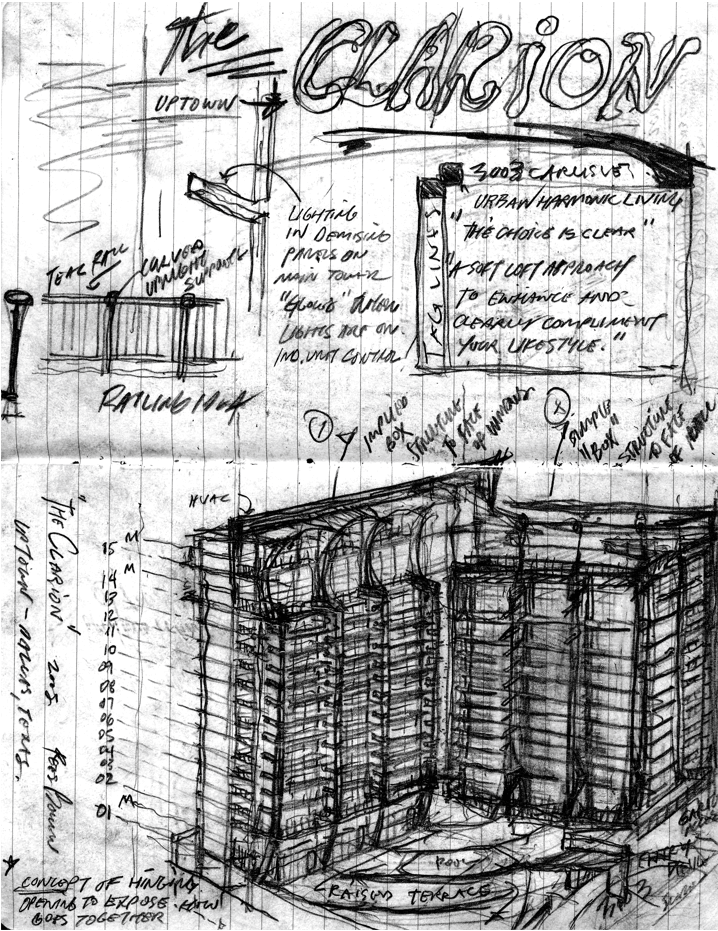 the CLARION
UPTOWN
3003 CARLISLE
"URBAN HARMONIC LIVING
"THE CHOICE IS CLEAR"
"A SOFT LOFT APPROACH
TO ENHANCE AND
CLEARLY COMPLIMENT
YOUR LIFESTYLE."
TAG LINES
LIGHTING
IN DEMISING
PANELS ON
MAIN TOWER
"GLOWS" WHEN
LIGHTS ARE ON
IND. UNIT CONTROL
TEAK RAIL
CURVED
UPRIGHT
SUPPORTS
RAILING IDEA
1
IMPLIED
BOX
STRUCTURE
TO FACE
OF
SIMPLE
"BOX"
STRUCTURE
TO FACE
OF
HVAC
M
15
M
14
13
12
11
10
09
08
07
06
05
04
03
02
M
01
"THE CLARION" 2005
UPTOWN - DALLAS, TEXAS.
POOL
RAISED TERRACE
ENTRY
3003
CONCEPT OF HINGING
OPENING TO EXPOSE HOW
GOES TOGETHER